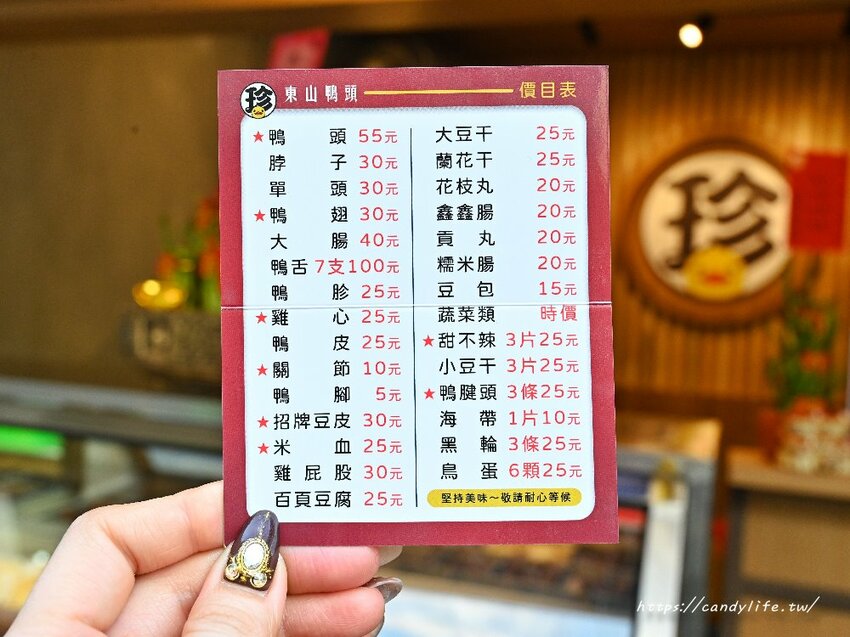 珍 東山鴨頭 價目表
★鴨頭 55元
脖子 30元
單頭 30元
★鴨翅 30元
大腸 40元
鴨舌 7支100元
鴨胗 25元
★雞心 25元
鴨皮 25元
★關節 10元
鴨腳 5元
★招牌豆皮 30元
★米血 25元
雞屁股 30元
百頁豆腐 25元
大豆干 25元
蘭花干 25元
花枝丸 20元
鑫鑫腸 20元
貢丸 20元
糯米腸 20元
豆包 15元
蔬菜類 時價
★甜不辣 3片25元
小豆干 3片25元
★鴨腱頭 3條25元
海帶 1片10元
黑輪 3條25元
鳥蛋 6顆25元
堅持美味～敬請耐心等候
珍
https://candylife.tw/